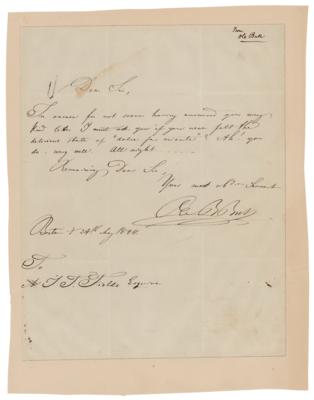 From
Ole Bull
Dear Sir,
In excuse for not sooner having answered your very
kind letter I must ask you if you ever felt the
delicious state of "dolce far niente"? Ah! you
do - very well. All right
Remaining, Dear Sir,
Your most ob. Servant
Ole B Bull
Boston 24th May 1844.
To
J. T. Fields Esquire